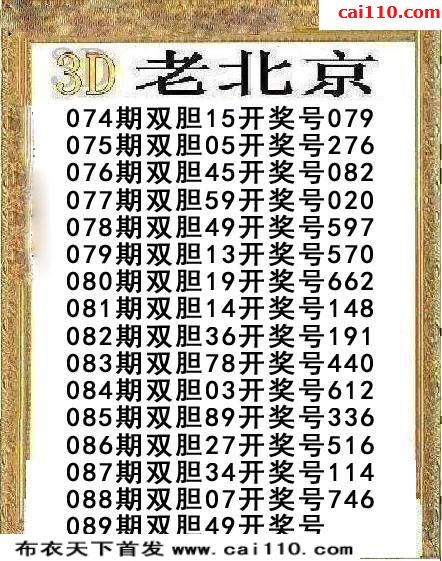 cai110.com
3D 老北京
074期双胆15开奖号079
075期双胆05开奖号276
076期双胆45开奖号082
077期双胆59开奖号020
078期双胆49开奖号597
079期双胆13开奖号570
080期双胆19开奖号662
081期双胆14开奖号148
082期双胆36开奖号191
083期双胆78开奖号440
084期双胆03开奖号612
085期双胆89开奖号336
086期双胆27开奖号516
087期双胆34开奖号114
088期双胆07开奖号746
089期双胆49开奖号
布衣天下首发 www.cai110.com